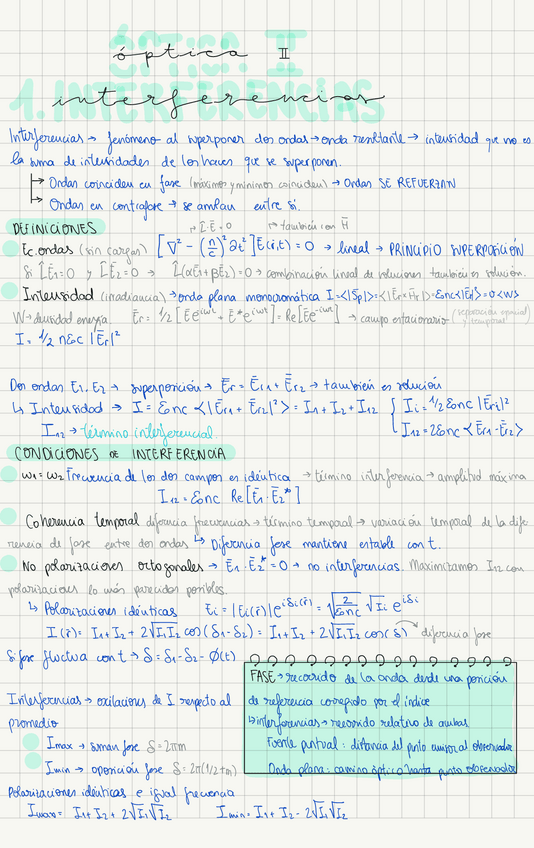 óptica II
1. INTERFERENCIAS
interferencias
Interferencias → fenómeno al superponer dos ondas → onda resultante → intensidad que no es
la suma de intensidades de los haces que se superponen.
→ Ondas coinciden en fase (máximos y mínimos coinciden) → Ondas SE REFUERZAN
→ Ondas en contrafase → se anulan entre sí.
DEFINICIONES
→ L̄·Ē = 0 → también con H̄
Ec. ondas (sin cargas) [∇² - (n/c)² ∂t²] Ē(r̄,t) = 0 → lineal → PRINCIPIO SUPERPOSICIÓN
Si L̄Ē1=0 y L̄Ē2=0 → L̄(αĒ1+βĒ2)=0 → combinación lineal de soluciones también es solución.
Intensidad (irradiancia) → onda plana monocromática I=<|S̄p|>=<|Ēr×H̄r|>=εnc<|Ēr|²>=υ<W>
W → densidad energía. Ēr = 1/2 [Ēe^iωt + Ē*e^iωt] = Re[Ēe^-iωt] → campo estacionario (separación espacial y temporal)
I = 1/2 nεc |Ēr|²
Dos ondas E1, E2 → superposición → Ēr = Ēr1 + Ēr2 → también es solución
↳ Intensidad → I = εnc <|Ēr1 + Ēr2|²> = I1 + I2 + I12 { Ii = 1/2 εnc |Ēri|²
I12 → término interferencial. I12 = 2εnc <Ēr1·Ēr2>
CONDICIONES DE INTERFERENCIA
ω1 = ω2 Frecuencia de los dos campos es idéntica → término interferencia → amplitud máxima
I12 = εnc Re[Ē1·Ē2*]
Coherencia temporal diferencia frecuencias → término temporal → variación temporal de la dife-
rencia de fase entre dos ondas ↳ Diferencia fase mantiene estable con t.
No polarizaciones ortogonales → Ē1·Ē2* = 0 → no interferencias. Maximizamos I12 con
polarizaciones lo más parecidas posibles.
↳ Polarizaciones idénticas Ei = |Ei(r̄)| e^iδi(r̄) = √(2/εnc) √Ii e^iδi
I(r̄) = I1 + I2 + 2√I1I2 cos(δ1-δ2) = I1 + I2 + 2√I1I2 cos(δ) → diferencia fase
Si fase fluctua con t → δ = δ1-δ2-φ(t)
FASE → recorrido de la onda desde una posición
de referencia corregido por el índice
↳ interferencias → recorrido relativo de ambas
Fuente puntual: distancia del punto emisor al observador
Onda plana: camino óptico hasta punto observador
Interferencias → oscilaciones de I respecto al
promedio
Imax → misma fase δ = 2πm
Imin → oposición fase δ = 2π(1/2+m)
Polarizaciones idénticas e igual frecuencia
Imax = I1 + I2 + 2√I1√I2 Imin = I1 + I2 - 2√I1√I2